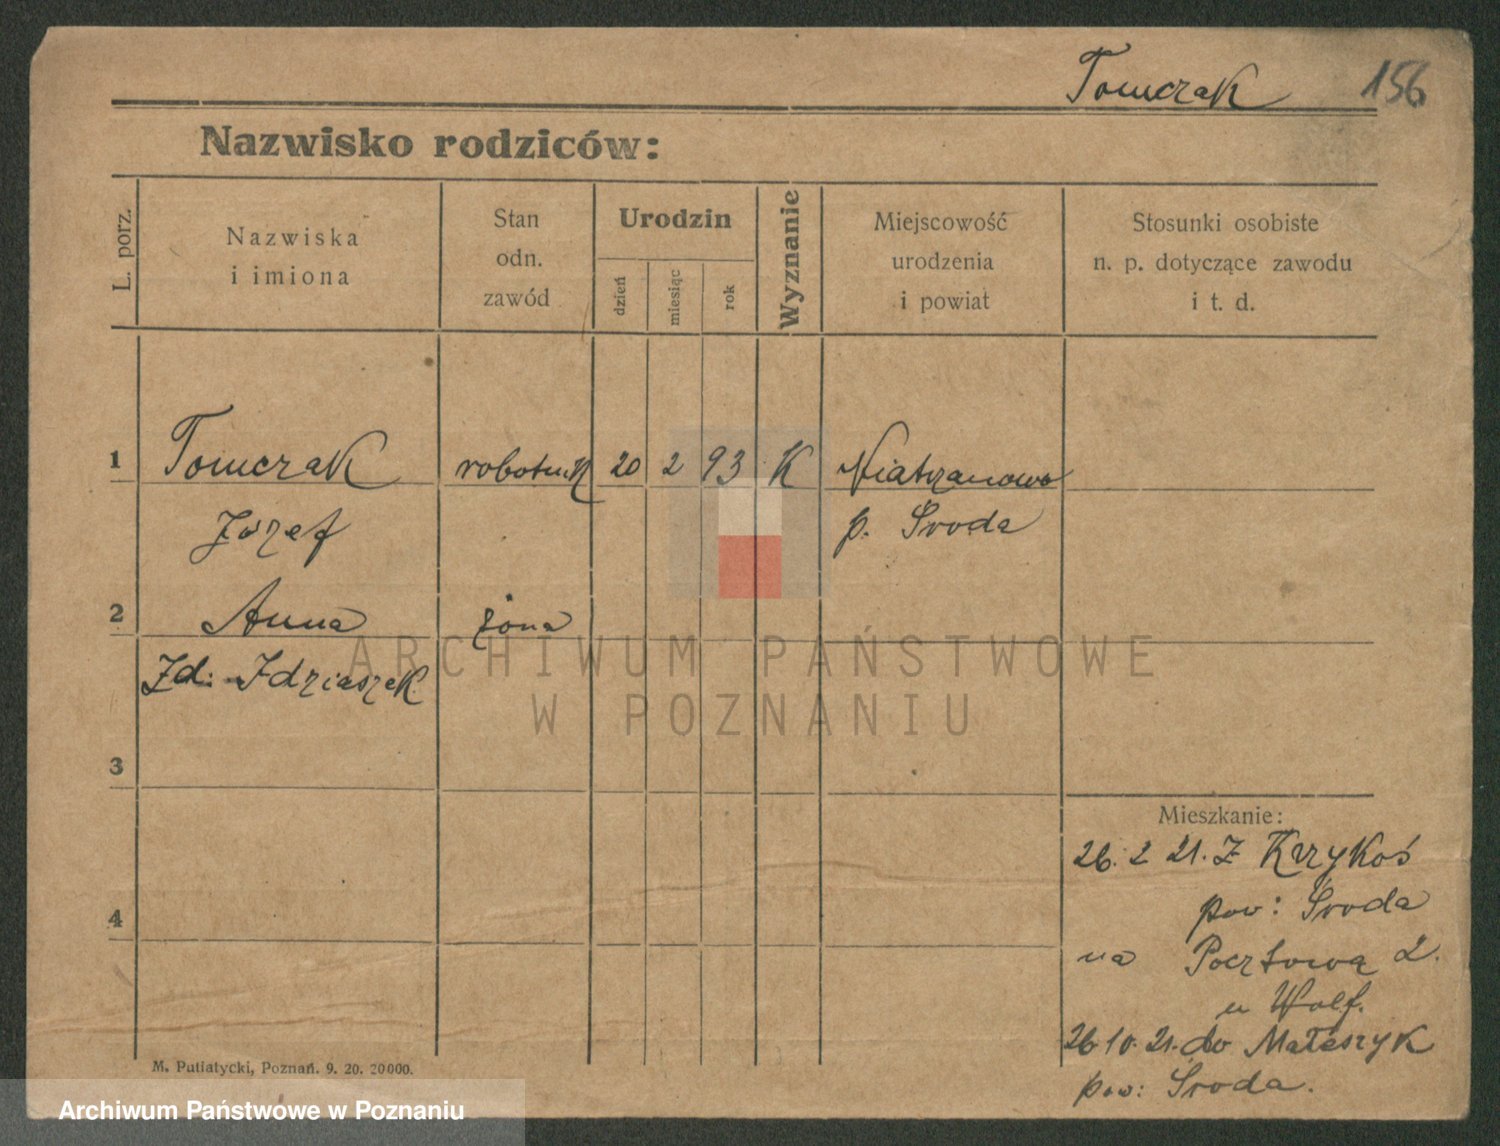 Tomczak 156
Nazwisko rodziców:
L. porz.
Nazwiska
i imiona
Stan
odn.
zawód
Urodzin
dzień
miesiąc
rok
Wyznanie
Miejscowość
urodzenia
i powiat
Stosunki osobiste
n. p. dotyczące zawodu
i t. d.
1 Tomczak robotnik 20 2 93 K Niatrzanowo
Józef p. Środa
2 Anna żona
Zd: Idziaszek
ARCHIWUM PAŃSTWOWE
W POZNANIU
3
Mieszkanie:
26. 2 21. Z Krzykoś
4 pow: Środa
na Pocztową 2.
u Wolf.
26 10. 21. do
pow: Środa.
M. Putiatycki, Poznań. 9. 20. 20000.
Archiwum Państwowe w Poznaniu